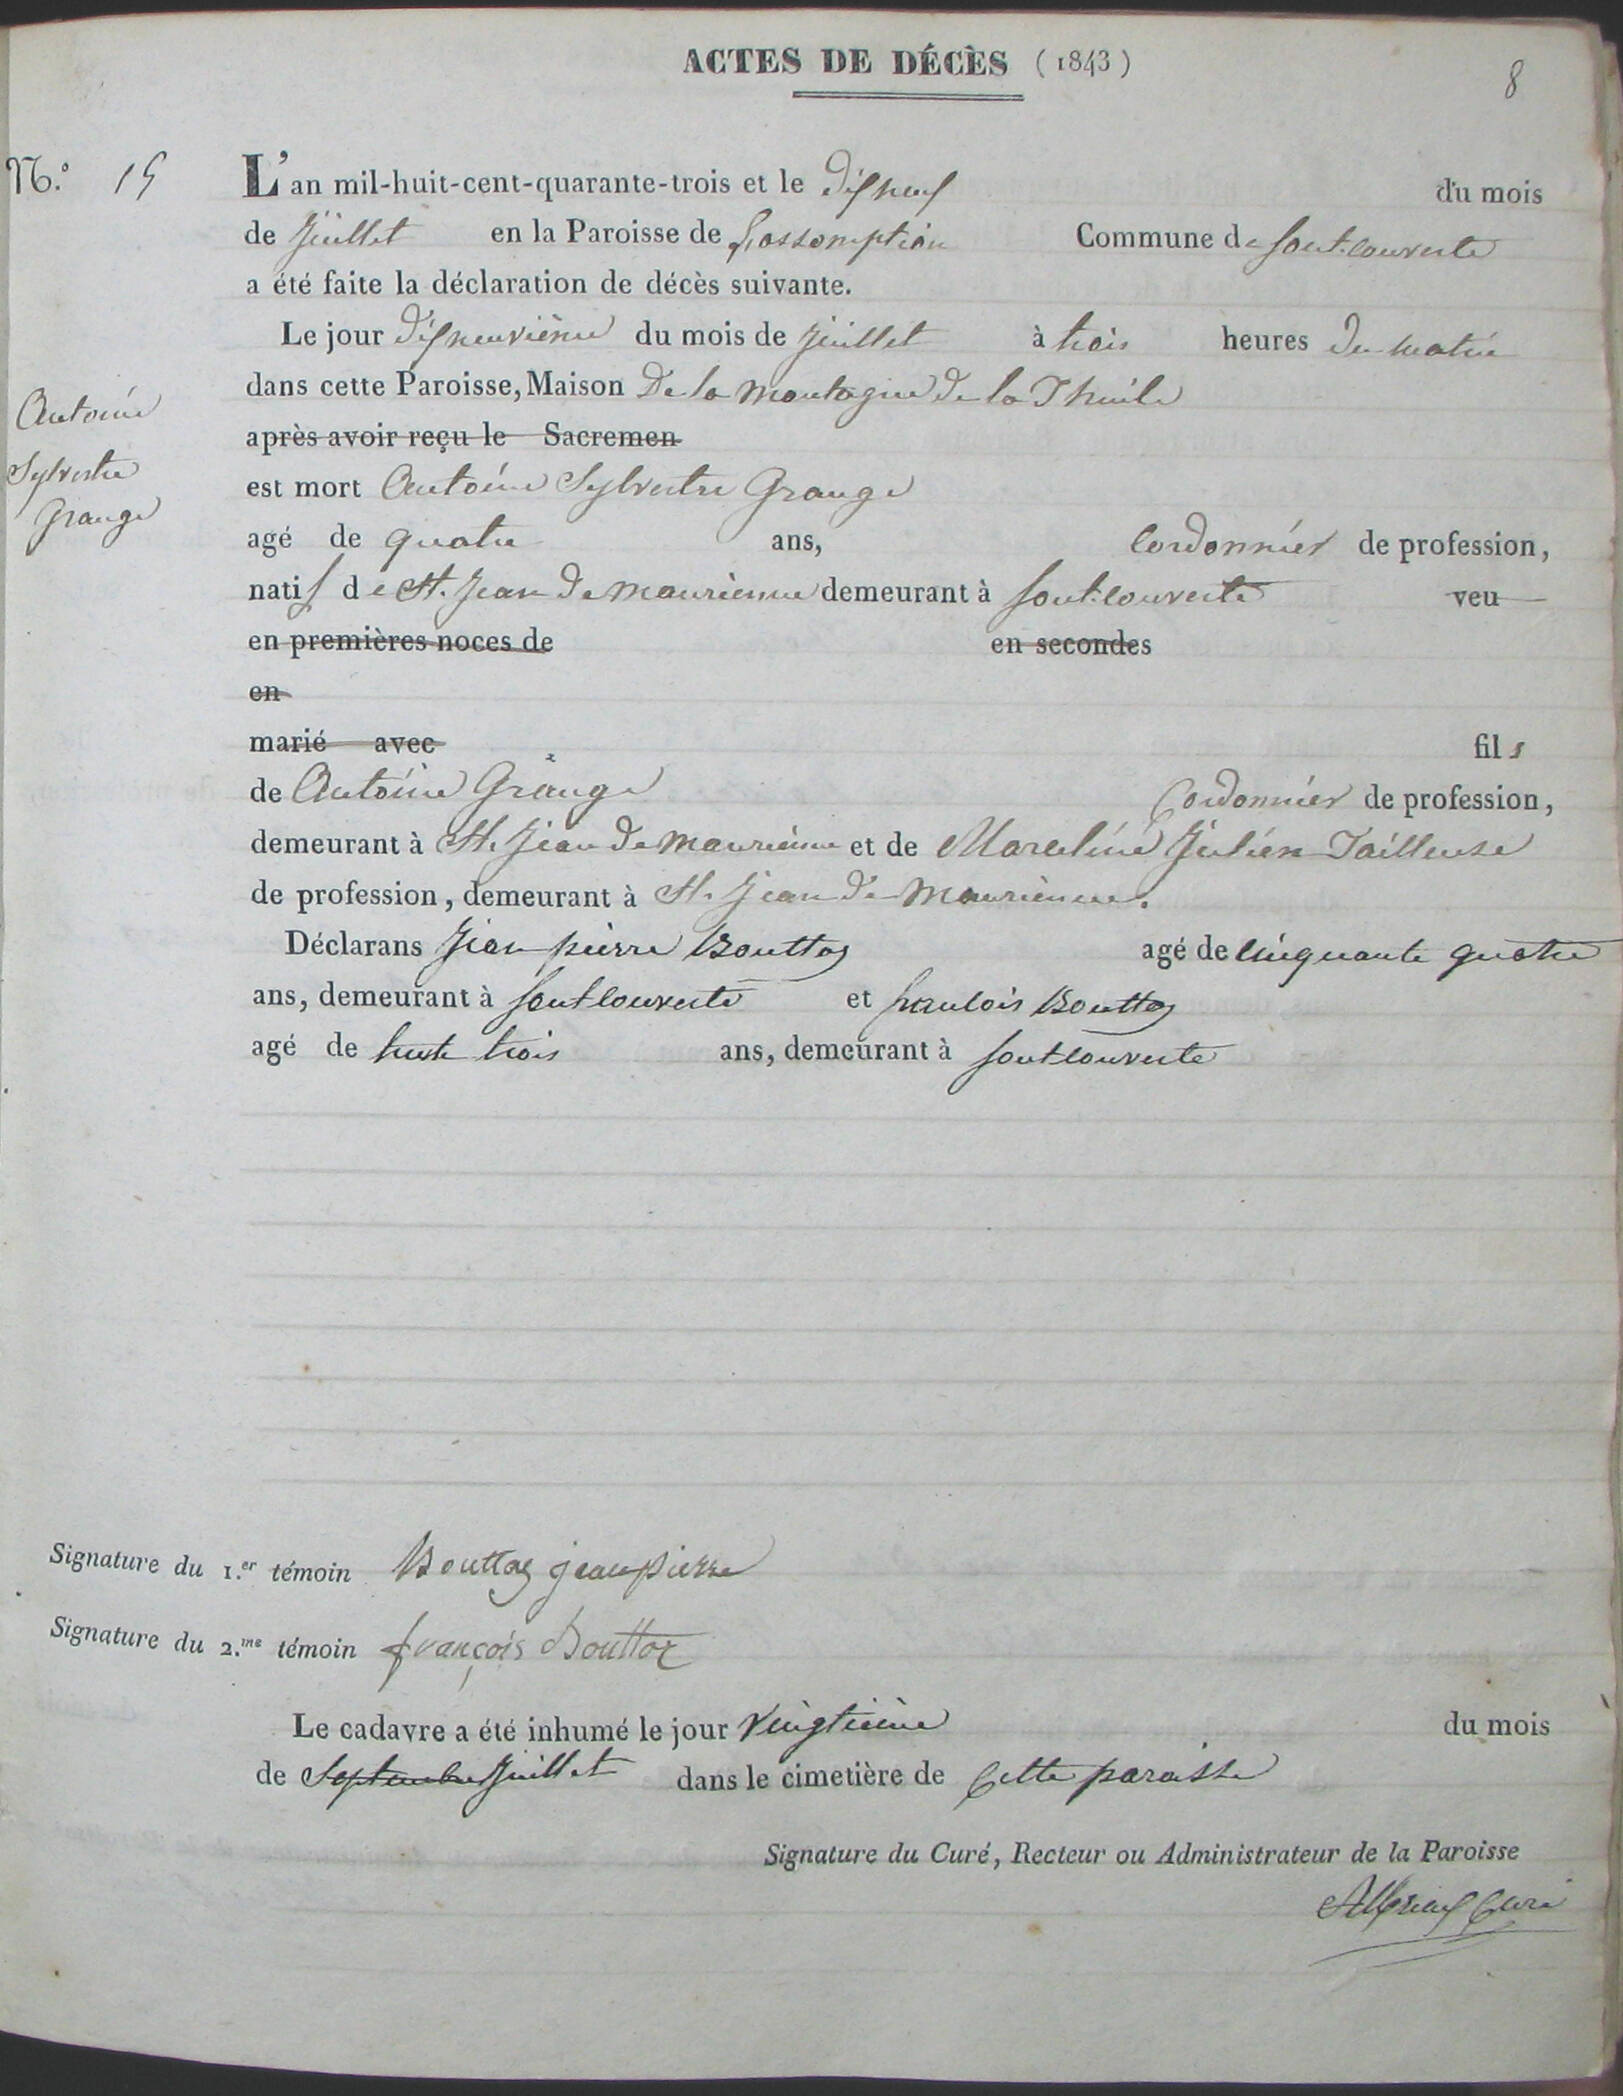 ACTES DE DÉCÈS (1843)
8
N.º 15
L'an mil-huit-cent-quarante-trois et le dixneuf du mois
de juillet en la Paroisse de L'assomption Commune de Fontcouverte
a été faite la déclaration de décès suivante.
Le jour dixneuvième du mois de juillet à trois heures du matin
dans cette Paroisse, Maison De la montagne de la Thuile
Antoine
Sylvestre
Grange
après avoir reçu le Sacremen
est mort Antoine Sylvestre Grange
agé de quatre ans, Cordonnier de profession,
natif de St. Jean de maurienne demeurant à Fontcouverte veu
en premières noces de en secondes
en
marié avec fils
de Antoine Grange Cordonnier de profession,
demeurant à St. Jean de maurienne et de Marceline Julien Tailleuse
de profession, demeurant à St. Jean de Maurienne.
Déclarans Jean pierre Bouttaz agé de cinquante quatre
ans, demeurant à Fontcouverte et francois Bouttaz
agé de trente trois ans, demeurant à fontcouverte
Signature du 1.er témoin Bouttaz jean pierre
Signature du 2.me témoin françois Bouttaz
Le cadavre a été inhumé le jour vingtième du mois
de Septembre Juillet dans le cimetière de Cette paroisse
Signature du Curé, Recteur ou Administrateur de la Paroisse
Curé